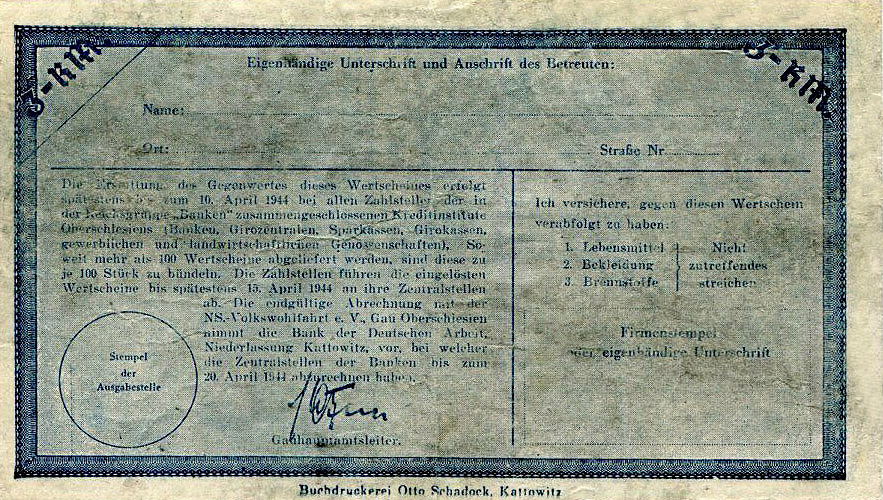 3-RM.
3-RM.
Eigenhändige Unterschrift und Anschrift des Betreuten:
Name:
Ort:
Straße Nr
Die Erstattung des Gegenwertes dieses Wertscheines erfolgt
spätestens bis zum 10. April 1944 bei allen Zahlstellen der in
der Reichsgruppe „Banken" zusammengeschlossenen Kreditinstitute
Oberschlesiens (Banken, Girozentralen, Sparkassen, Girokassen,
gewerblichen und landwirtschaftlichen Genossenschaften). So-
weit mehr als 100 Wertscheine abgeliefert werden, sind diese zu
je 100 Stück zu bündeln. Die Zahlstellen führen die eingelösten
Wertscheine bis spätestens 15. April 1944 an ihre Zentralstellen
ab. Die endgültige Abrechnung mit der
NS.-Volkswohlfahrt e. V., Gau Oberschlesien
nimmt die Bank der Deutschen Arbeit,
Niederlassung Kattowitz, vor, bei welcher
die Zentralstellen der Banken bis zum
20. April 1944 abzurechnen haben.
Gauhauptamtsleiter.
Stempel
der
Ausgabestelle
Ich versichere, gegen diesen Wertschein
verabfolgt zu haben:
1. Lebensmittel Nicht
2. Bekleidung zutreffendes
3. Brennstoffe streichen
Firmenstempel
oder eigenhändige Unterschrift
Buchdruckerei Otto Schadock, Kattowitz